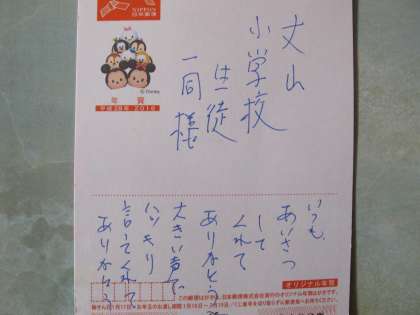 NIPPON
日本郵便
© Disney
年賀
平成28年 2016
丈山
小学校
生徒
一同様
いつも
あいさつ
して
くれて
ありがとう
大きい声で
ハッキリ
言ってくれて
ありがとう
オリジナル年賀